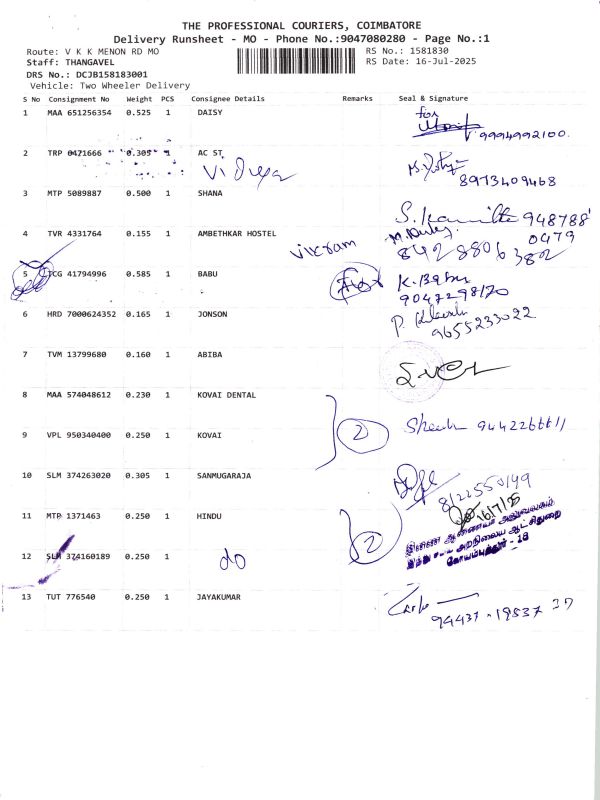 THE PROFESSIONAL COURIERS, COIMBATORE
Delivery Runsheet - MO - Phone No.:9047080280 - Page No.:1
Route: V K K MENON RD MO RS No.: 1581830
Staff: THANGAVEL RS Date: 16-Jul-2025
DRS No.: DCJB158183001
Vehicle: Two Wheeler Delivery
S No Consignment No Weight PCS Consignee Details Remarks Seal & Signature
1 MAA 651256354 0.525 1 DAISY for
9994992100.
2 TRP 0471666 0.305 1 AC ST
Vidya
8973409468
3 MTP 5089887 0.500 1 SHANA
948788
0479
4 TVR 4331764 0.155 1 AMBETHKAR HOSTEL
Vikram 842 8806 382
5 TCG 41794996 0.585 1 BABU K. Babu
9047298120
6 HRD 7000624352 0.165 1 JONSON
9655233022
7 TVM 13799680 0.160 1 ABIBA
8 MAA 574048612 0.230 1 KOVAI DENTAL
2
9 VPL 950340400 0.250 1 KOVAI
10 SLM 374263020 0.305 1 SANMUGARAJA
8122550149
11 MTP 1371463 0.250 1 HINDU 16/7/25
2
12 SLM 374160189 0.250 1
do
கோயம்புத்தூர் - 18
13 TUT 776540 0.250 1 JAYAKUMAR
94437 - 19537